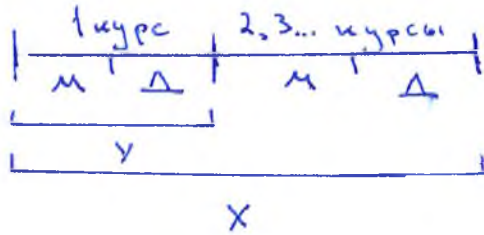 1 курс 2,3... курсы
м Д м Д
У
X